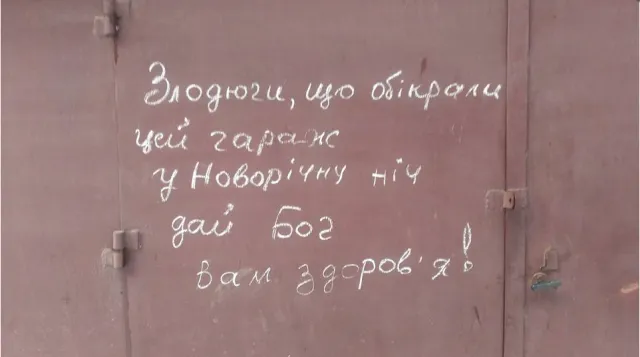 Злодюги, що обікрали
цей гараж
у Новорічну ніч
дай Бог
вам здоров'я!